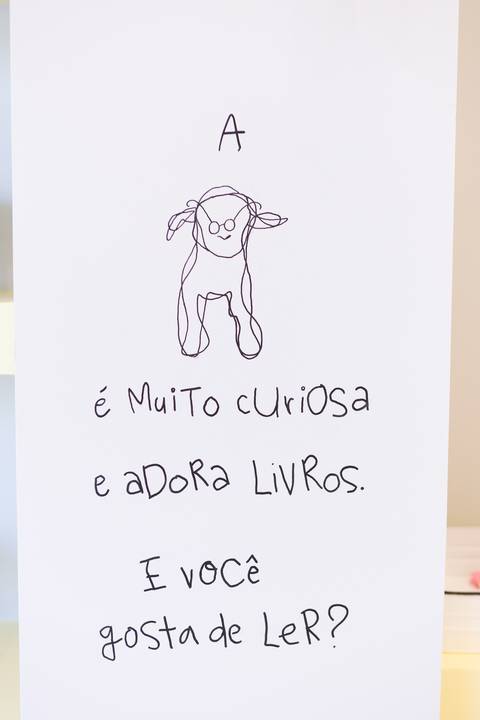 A
é MuiTo cUriOSa
e aDoRa LiVRos.
E você
gosta de LeR?